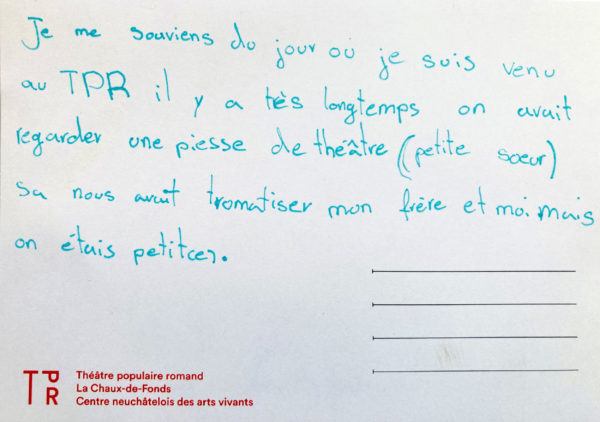 Je me souviens du jour où je suis venu
au TPR il y a très longtemps on avait
regarder une piesse de théâtre (petite soeur)
Sa nous avait tromatiser mon frère et moi. mais
on étais petit(e).
TPR
Théâtre populaire romand
La Chaux-de-Fonds
Centre neuchâtelois des arts vivants